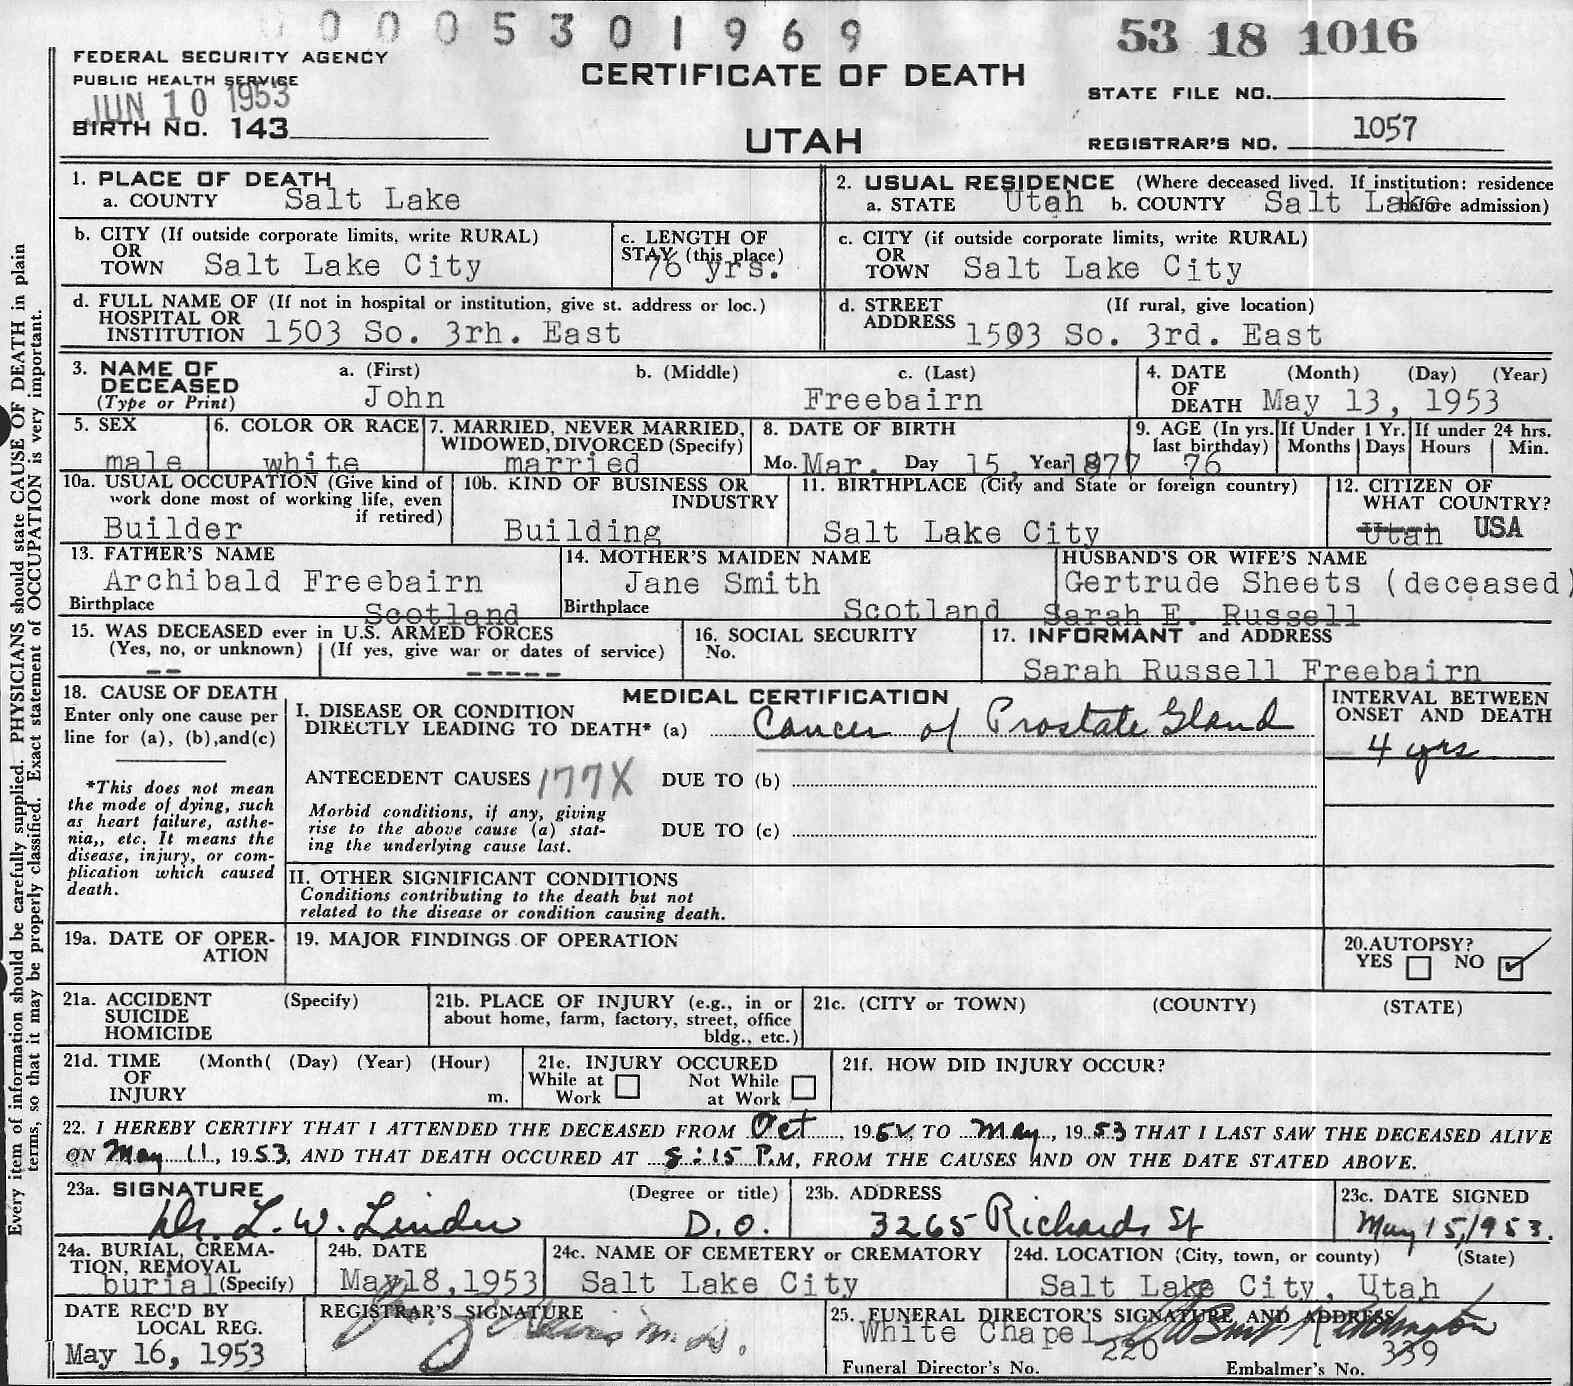 0005301969
53 18 1016
FEDERAL SECURITY AGENCY
PUBLIC HEALTH SERVICE
JUN 10 1953
CERTIFICATE OF DEATH
STATE FILE NO.
BIRTH NO. 143
UTAH
REGISTRAR'S NO. 1057
1. PLACE OF DEATH
a. COUNTY Salt Lake
2. USUAL RESIDENCE (Where deceased lived. If institution: residence before admission)
a. STATE Utah b. COUNTY Salt Lake
b. CITY (If outside corporate limits, write RURAL)
OR
TOWN Salt Lake City
c. LENGTH OF
STAY (this place)
76 yrs.
c. CITY (if outside corporate limits, write RURAL)
OR
TOWN Salt Lake City
d. FULL NAME OF (If not in hospital or institution, give st. address or loc.)
HOSPITAL OR
INSTITUTION 1503 So. 3rh. East
d. STREET (If rural, give location)
ADDRESS 1503 So. 3rd. East
3. NAME OF
DECEASED
(Type or Print)
a. (First) b. (Middle) c. (Last)
John Freebairn
4. DATE (Month) (Day) (Year)
OF
DEATH May 13, 1953
5. SEX
male
6. COLOR OR RACE
white
7. MARRIED, NEVER MARRIED,
WIDOWED, DIVORCED (Specify)
married
8. DATE OF BIRTH
Mo. Mar. Day 15, Year 1877
9. AGE (In yrs. last birthday)
76
If Under 1 Yr.
Months Days
If under 24 hrs.
Hours Min.
10a. USUAL OCCUPATION (Give kind of
work done most of working life, even
if retired)
Builder
10b. KIND OF BUSINESS OR
INDUSTRY
Building
11. BIRTHPLACE (City and State or foreign country)
Salt Lake City
12. CITIZEN OF
WHAT COUNTRY?
Utah USA
13. FATHER'S NAME
Archibald Freebairn
Birthplace Scotland
14. MOTHER'S MAIDEN NAME
Jane Smith
Birthplace Scotland
HUSBAND'S OR WIFE'S NAME
Gertrude Sheets (deceased)
Sarah E. Russell
15. WAS DECEASED ever in U.S. ARMED FORCES
(Yes, no, or unknown) (If yes, give war or dates of service)
-- -----
16. SOCIAL SECURITY
No.
17. INFORMANT and ADDRESS
Sarah Russell Freebairn
18. CAUSE OF DEATH
Enter only one cause per
line for (a), (b),and(c)
*This does not mean
the mode of dying, such
as heart failure, asthe-
nia,, etc. It means the
disease, injury, or com-
plication which caused
death.
MEDICAL CERTIFICATION
I. DISEASE OR CONDITION
DIRECTLY LEADING TO DEATH* (a) Cancer of Prostate Gland
INTERVAL BETWEEN
ONSET AND DEATH
4 yrs
ANTECEDENT CAUSES 177X DUE TO (b)
Morbid conditions, if any, giving
rise to the above cause (a) stat-
ing the underlying cause last.
DUE TO (c)
II. OTHER SIGNIFICANT CONDITIONS
Conditions contributing to the death but not
related to the disease or condition causing death.
19a. DATE OF OPER-
ATION
19. MAJOR FINDINGS OF OPERATION
20. AUTOPSY?
YES NO ✓
21a. ACCIDENT (Specify)
SUICIDE
HOMICIDE
21b. PLACE OF INJURY (e.g., in or
about home, farm, factory, street, office
bldg., etc.)
21c. (CITY or TOWN) (COUNTY) (STATE)
21d. TIME (Month( (Day) (Year) (Hour)
OF
INJURY m.
21e. INJURY OCCURED
While at Work Not While at Work
21f. HOW DID INJURY OCCUR?
22. I HEREBY CERTIFY THAT I ATTENDED THE DECEASED FROM Oct, 1952, TO May, 1953 THAT I LAST SAW THE DECEASED ALIVE
ON May 11, 1953, AND THAT DEATH OCCURED AT 8:15 P.M, FROM THE CAUSES AND ON THE DATE STATED ABOVE.
23a. SIGNATURE (Degree or title)
Dr. L. W. Linder D.O.
23b. ADDRESS
3265 Richards St
23c. DATE SIGNED
May 15, 1953.
24a. BURIAL, CREMA-
TION, REMOVAL
burial (Specify)
24b. DATE
May 18, 1953
24c. NAME OF CEMETERY or CREMATORY
Salt Lake City
24d. LOCATION (City, town, or county) (State)
Salt Lake City, Utah
DATE REC'D BY
LOCAL REG.
May 16, 1953
REGISTRAR'S SIGNATURE
25. FUNERAL DIRECTOR'S SIGNATURE AND ADDRESS
White Chapel
Funeral Director's No. 220 Embalmer's No. 339
Every item of information should be carefully supplied. PHYSICIANS should state CAUSE OF DEATH in plain
terms, so that it may be properly classified. Exact statement of OCCUPATION is very important.